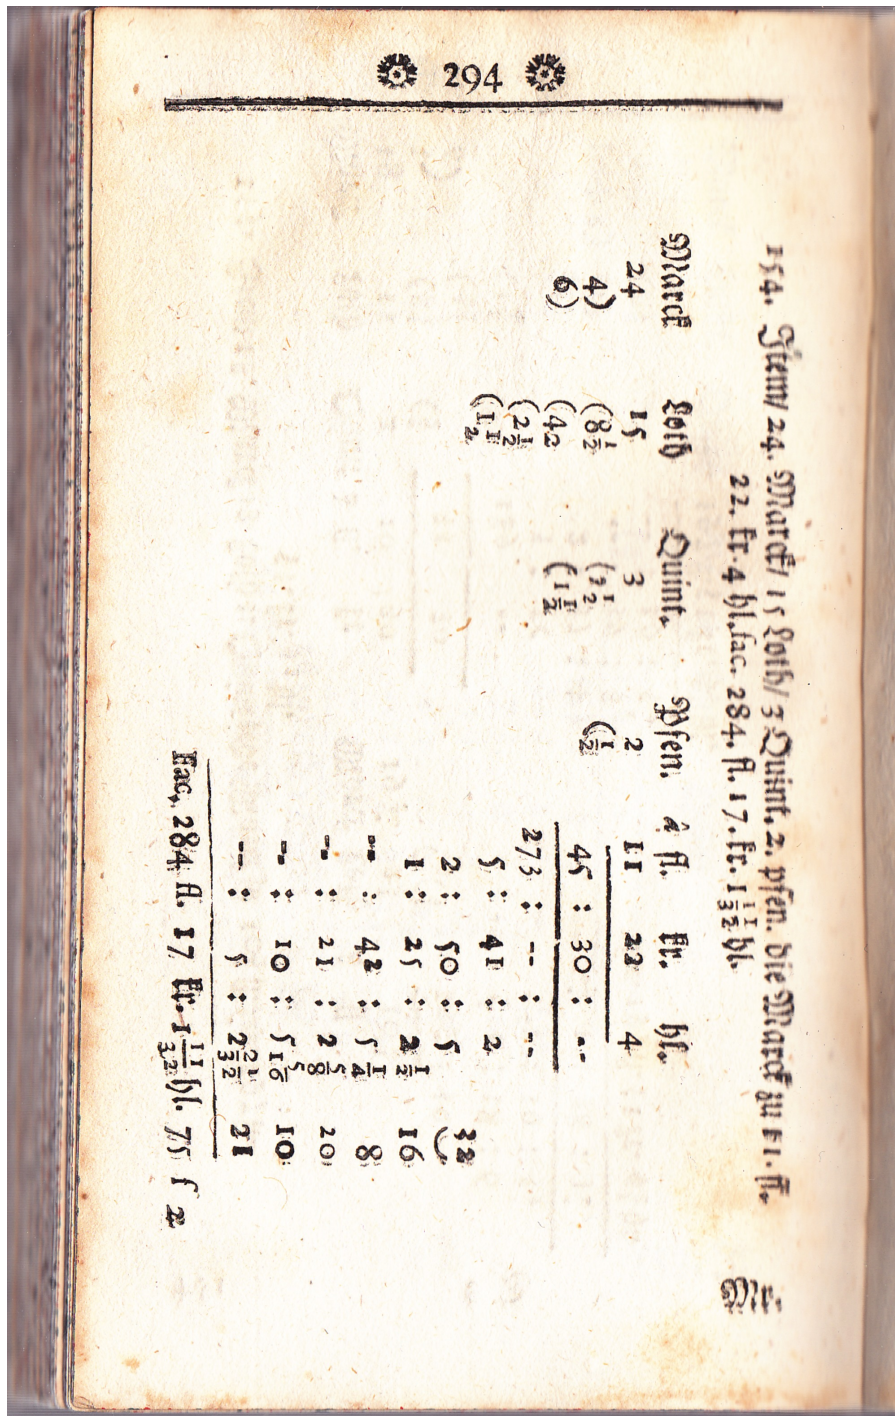 294
154. Item/ 24. Marck/ 15 Loth/ 3 Quint. 2. pfen. die Marck zu 11. fl.
22. kr. 4 hl. fac. 284. fl. 17. kr. 1 11/32 hl.
Marck Loth Quint. Pfen. à fl. kr. hl.
24 15 3 2 11 22 4
4) (8 1/2 (2 1/2 (1/2 45 : 30 : --
6) (4 2 (1 1/2 273 : -- : --
(2 1/2 5 : 41 : 2 32
(1 1/2 2 : 50 : 5 )
1 : 25 : 2 1/2 16
-- : 42 : 5 1/4 8
-- : 21 : 2 5/8 20
-- : 10 : 5 5/16 10
-- : 5 : 2 21/32 21
Fac. 284 fl. 17 kr. 1 11/32 hl. 75 f 2
Mr.